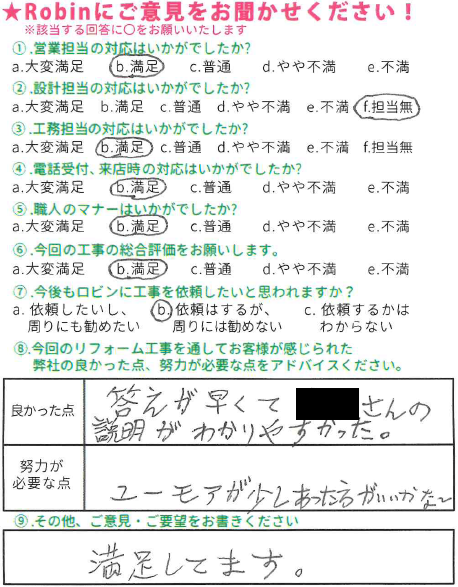 ★Robinにご意見をお聞かせください！
※該当する回答に○をお願いいたします
①.営業担当の対応はいかがでしたか?
a.大変満足 b.満足 c.普通 d.やや不満 e.不満
②.設計担当の対応はいかがでしたか?
a.大変満足 b.満足 c.普通 d.やや不満 e.不満 f.担当無
③.工務担当の対応はいかがでしたか?
a.大変満足 b.満足 c.普通 d.やや不満 e.不満 f.担当無
④.電話受付、来店時の対応はいかがでしたか?
a.大変満足 b.満足 c.普通 d.やや不満 e.不満
⑤.職人のマナーはいかがでしたか?
a.大変満足 b.満足 c.普通 d.やや不満 e.不満
⑥.今回の工事の総合評価をお願いします。
a.大変満足 b.満足 c.普通 d.やや不満 e.不満
⑦.今後もロビンに工事を依頼したいと思われますか？
a. 依頼したいし、 b. 依頼はするが、 c. 依頼するかは
周りにも勧めたい 周りには勧めない わからない
⑧.今回のリフォーム工事を通してお客様が感じられた
弊社の良かった点、努力が必要な点をアドバイスください。
良かった点
答えが早くて さんの
説明がわかりやすかった。
努力が
必要な点
ユーモアが少しあったらがいいかな〜
⑨.その他、ご意見・ご要望をお書きください
満足してます。